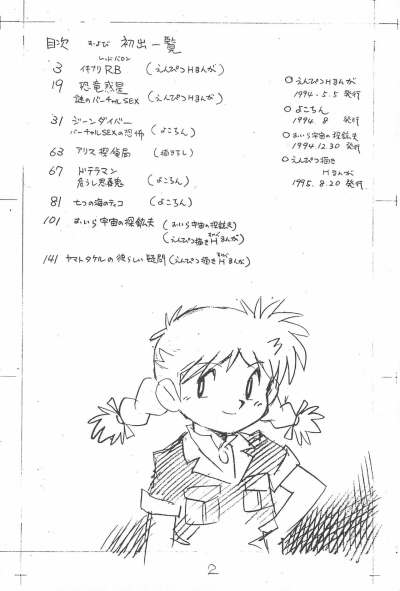 目次 および 初出一覧
レッドバロン
3 イキナリ RB (えんぴつHまんが)
19 恐竜惑星
謎のバーチャルSEX (えんぴつHまんが)
31 ジーンダイバー
バーチャルSEXの恐怖 (よこちん)
63 アリス探偵局 (描き下し)
67 ドテラマン
危うし忍者鬼 (よこちん)
81 七つの海のティコ (よこちん)
101 おいら宇宙の探鉱夫 (おいら宇宙の探鉱夫)
(えんぴつ描きHまんが)
141 ヤマトタケルの彼らしい疑問 (えんぴつ描きHまんが)
○えんぴつHまんが
1994.5.5 発行
○よこちん
1994.8 発行
○おいら宇宙の探鉱夫
1994.12.30 発行
○えんぴつ描き
Hまんが
1995.8.20 発行
2